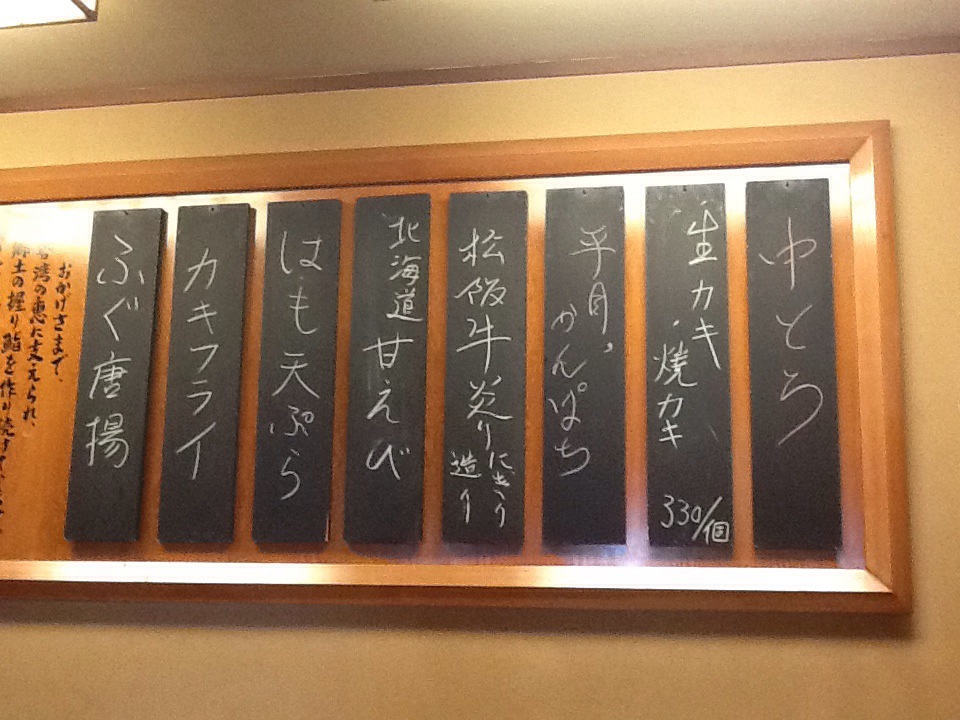 中とろ
生カキ・焼カキ 330/個
平目、かんぱち
松阪牛炙りにぎり
造り
北海道甘えび
はも天ぷら
カキフライ
ふぐ唐揚
おかげさまで、
台湾の恵に支えられ、
郷土の握り鮨を作り続けて